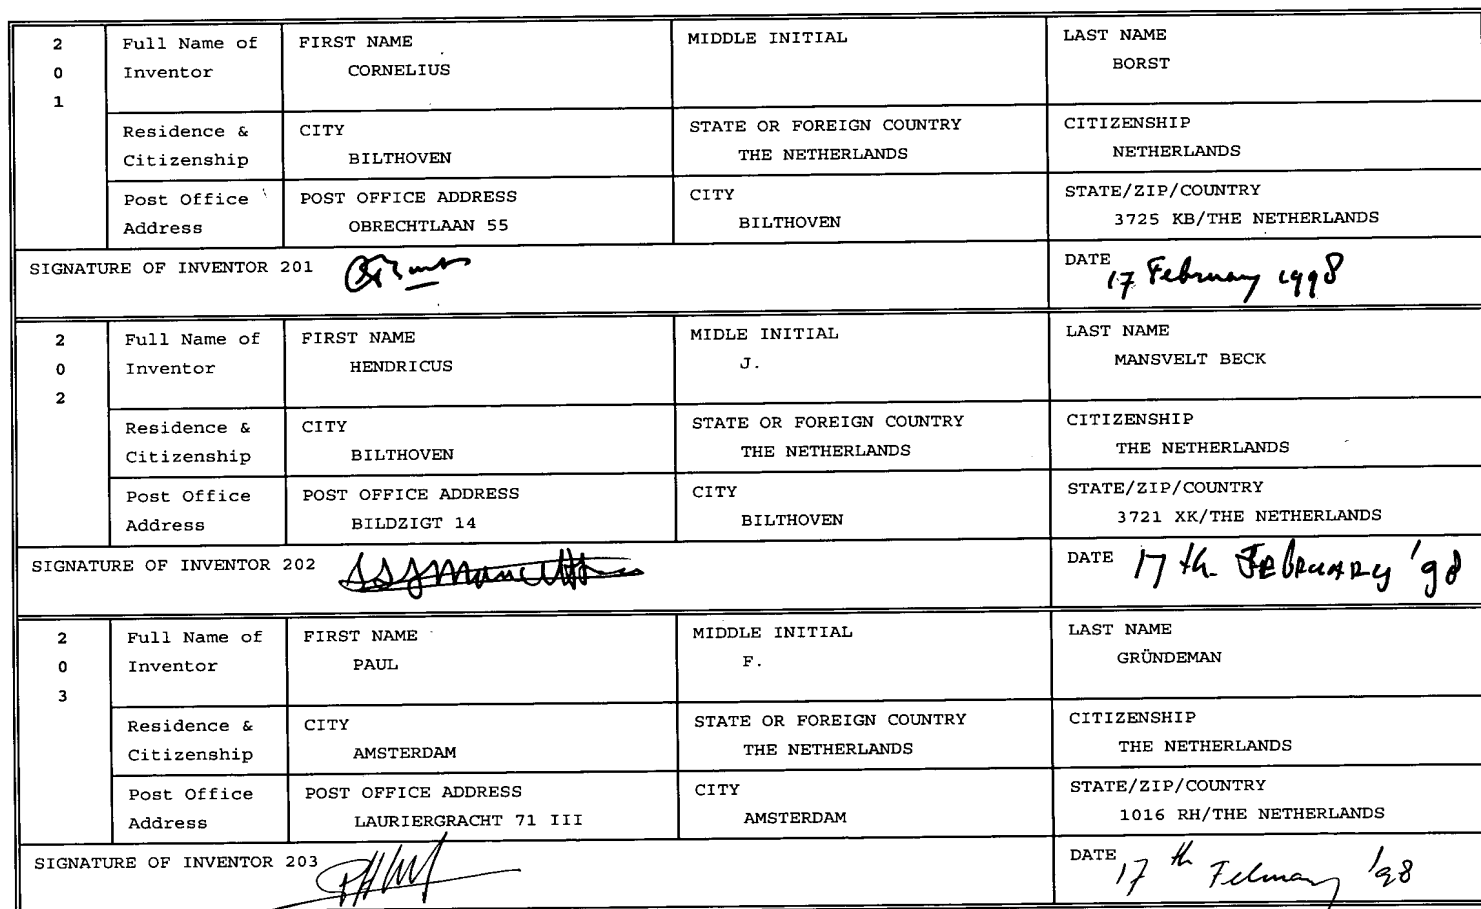 2 0 1
Full Name of Inventor
FIRST NAME
CORNELIUS
MIDDLE INITIAL
LAST NAME
BORST
Residence & Citizenship
CITY
BILTHOVEN
STATE OR FOREIGN COUNTRY
THE NETHERLANDS
CITIZENSHIP
NETHERLANDS
Post Office Address
POST OFFICE ADDRESS
OBRECHTLAAN 55
CITY
BILTHOVEN
STATE/ZIP/COUNTRY
3725 KB/THE NETHERLANDS
SIGNATURE OF INVENTOR 201
DATE
17 February 1998
2 0 2
Full Name of Inventor
FIRST NAME
HENDRICUS
MIDLE INITIAL
J.
LAST NAME
MANSVELT BECK
Residence & Citizenship
CITY
BILTHOVEN
STATE OR FOREIGN COUNTRY
THE NETHERLANDS
CITIZENSHIP
THE NETHERLANDS
Post Office Address
POST OFFICE ADDRESS
BILDZIGT 14
CITY
BILTHOVEN
STATE/ZIP/COUNTRY
3721 XK/THE NETHERLANDS
SIGNATURE OF INVENTOR 202
DATE 17 th February '98
2 0 3
Full Name of Inventor
FIRST NAME
PAUL
MIDDLE INITIAL
F.
LAST NAME
GRÜNDEMAN
Residence & Citizenship
CITY
AMSTERDAM
STATE OR FOREIGN COUNTRY
THE NETHERLANDS
CITIZENSHIP
THE NETHERLANDS
Post Office Address
POST OFFICE ADDRESS
LAURIERGRACHT 71 III
CITY
AMSTERDAM
STATE/ZIP/COUNTRY
1016 RH/THE NETHERLANDS
SIGNATURE OF INVENTOR 203
DATE 17 th February '98